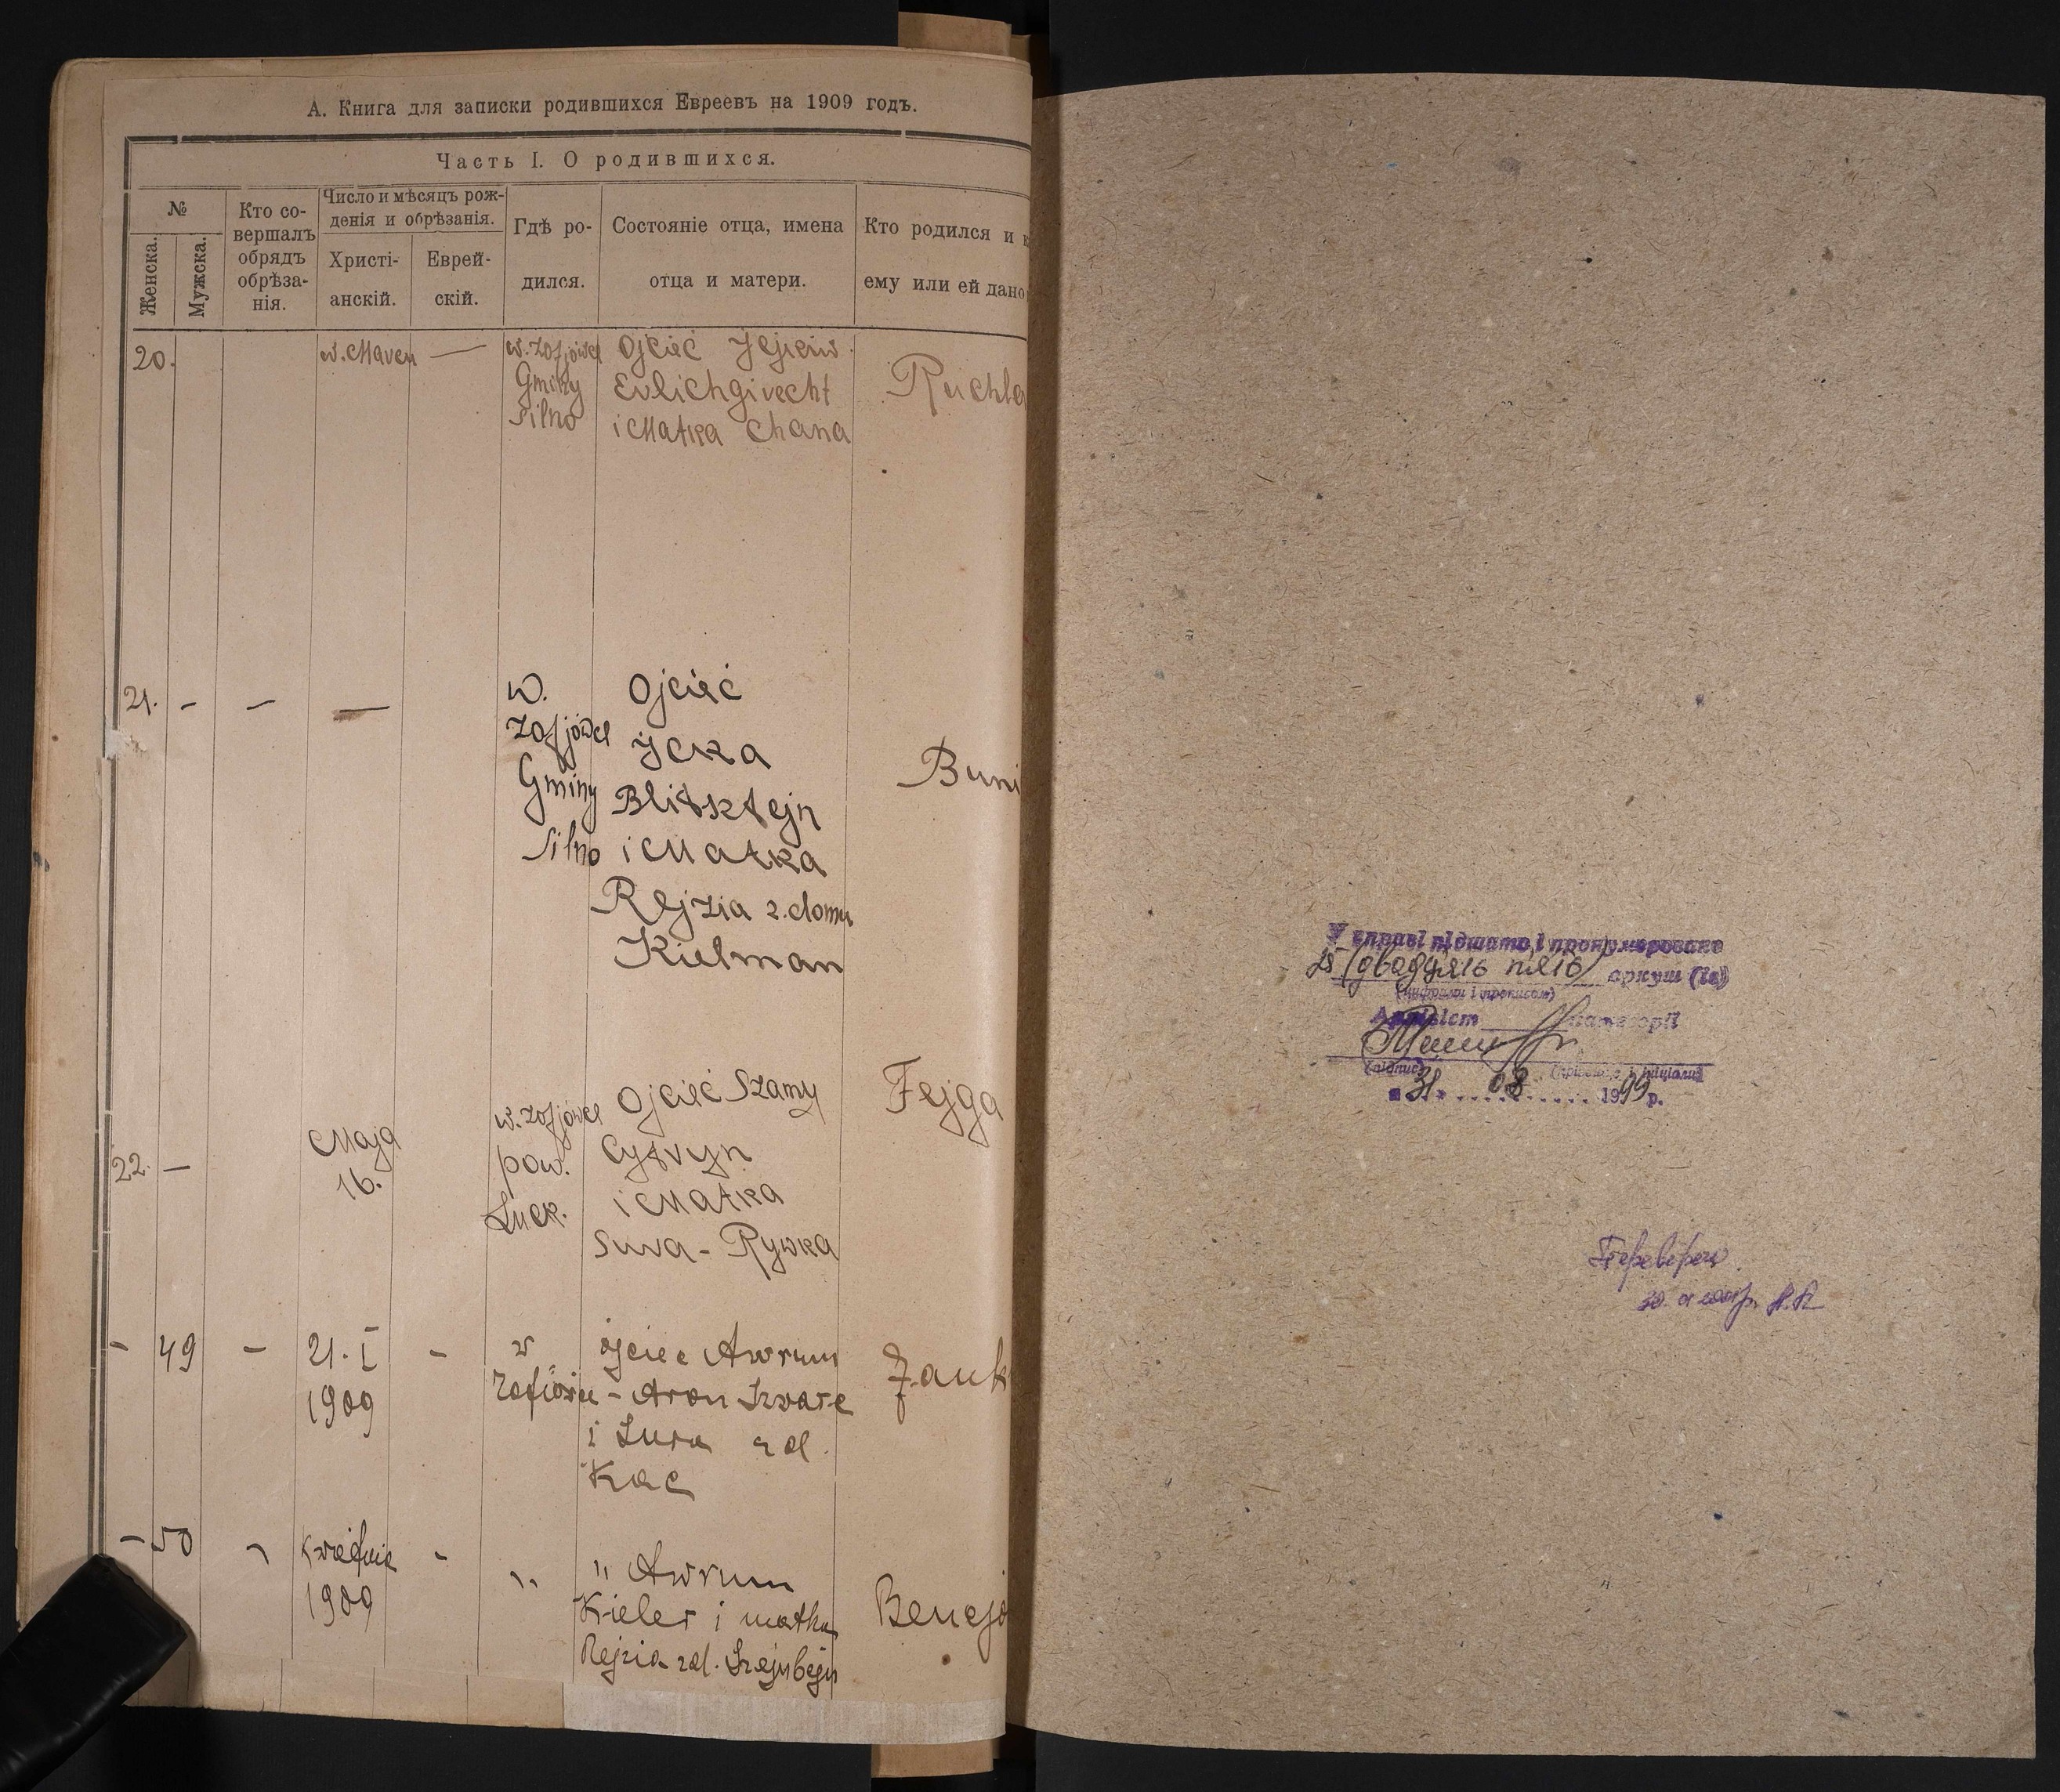 А. Книга для записки родившихся Евреевъ на 1909 годъ.
Часть I. О родившихся.
№
Женска.
Мужска.
Кто со-
вершалъ
обрядъ
обрѣза-
нія.
Число и мѣсяцъ рож-
денія и обрѣзанія.
Христі-
анскій.
Еврей-
скій.
Гдѣ ро-
дился.
Состояніе отца, имена
отца и матери.
Кто родился и к
ему или ей дано
20.
w. Marcu
—
w. Zofjówce
Gminy
Silno
Ojcieć
i Matka Chana
Ruchla
21. - - —
w.
Zofjówce
Gminy
Silno
Ojcieć
Icka
Blitsztejn
i Matka
Rejzia z. domu
Kielman
Buni
22. —
Maja
16.
w. Zofjówce
pow.
Łuck.
Ojcieć Szamy
Cytryn
i Matka
Sura - Rywka
Fejga
- 49 -
21. I
1909
-
w
Zofiówce
Ojciec Awrum
- Aron Szwarc
i Sura z d.
Kac
Jank
- 50
Kwietnie
1909
-
"
" Awrum
Kieler i matka
Rejzia z d. Szejnbejn
У справі підшито, і пронумеровано
25 (двадцять п'ять) аркуш (ів)
(цифрами і прописом)
Архівіст категорії
(підпис) (прізвище, і ініціали)
" 31 " 08 1999 р.